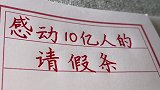 感动10亿人的
请假条